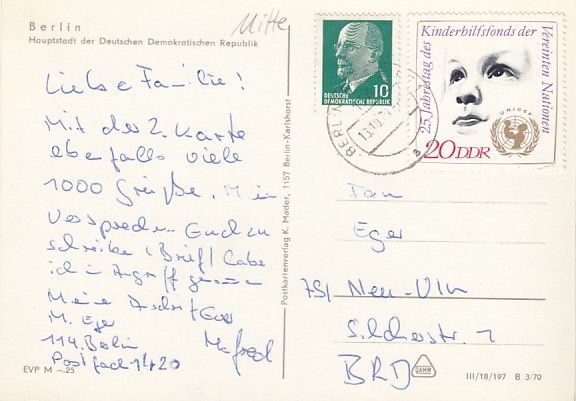 Berlin
Hauptstadt der Deutschen Demokratischen Republik
Mitte
Liebe Familie!
Mit der 2. Karte
ebenfalls viele
1000 Grüße. Mein
Versprechen Euch zu
schreiben (Brief) habe
ich in Angriff genommen
Meine Anschrift
M. Eger
114 Berlin
Postfach 1420
Manfred
EVP M –.25
Postkartenverlag K. Mader, 1157 Berlin-Karlshorst
10
DEUTSCHE
DEMOKRATISCHE REPUBLIK
25. Jahrestag des Kinderhilfsfonds der Vereinten Nationen
UNICEF
20 DDR
BERLIN
a
Fam
Eger
791 Neu-Ulm
1
BRD
III/18/197 B 3/70